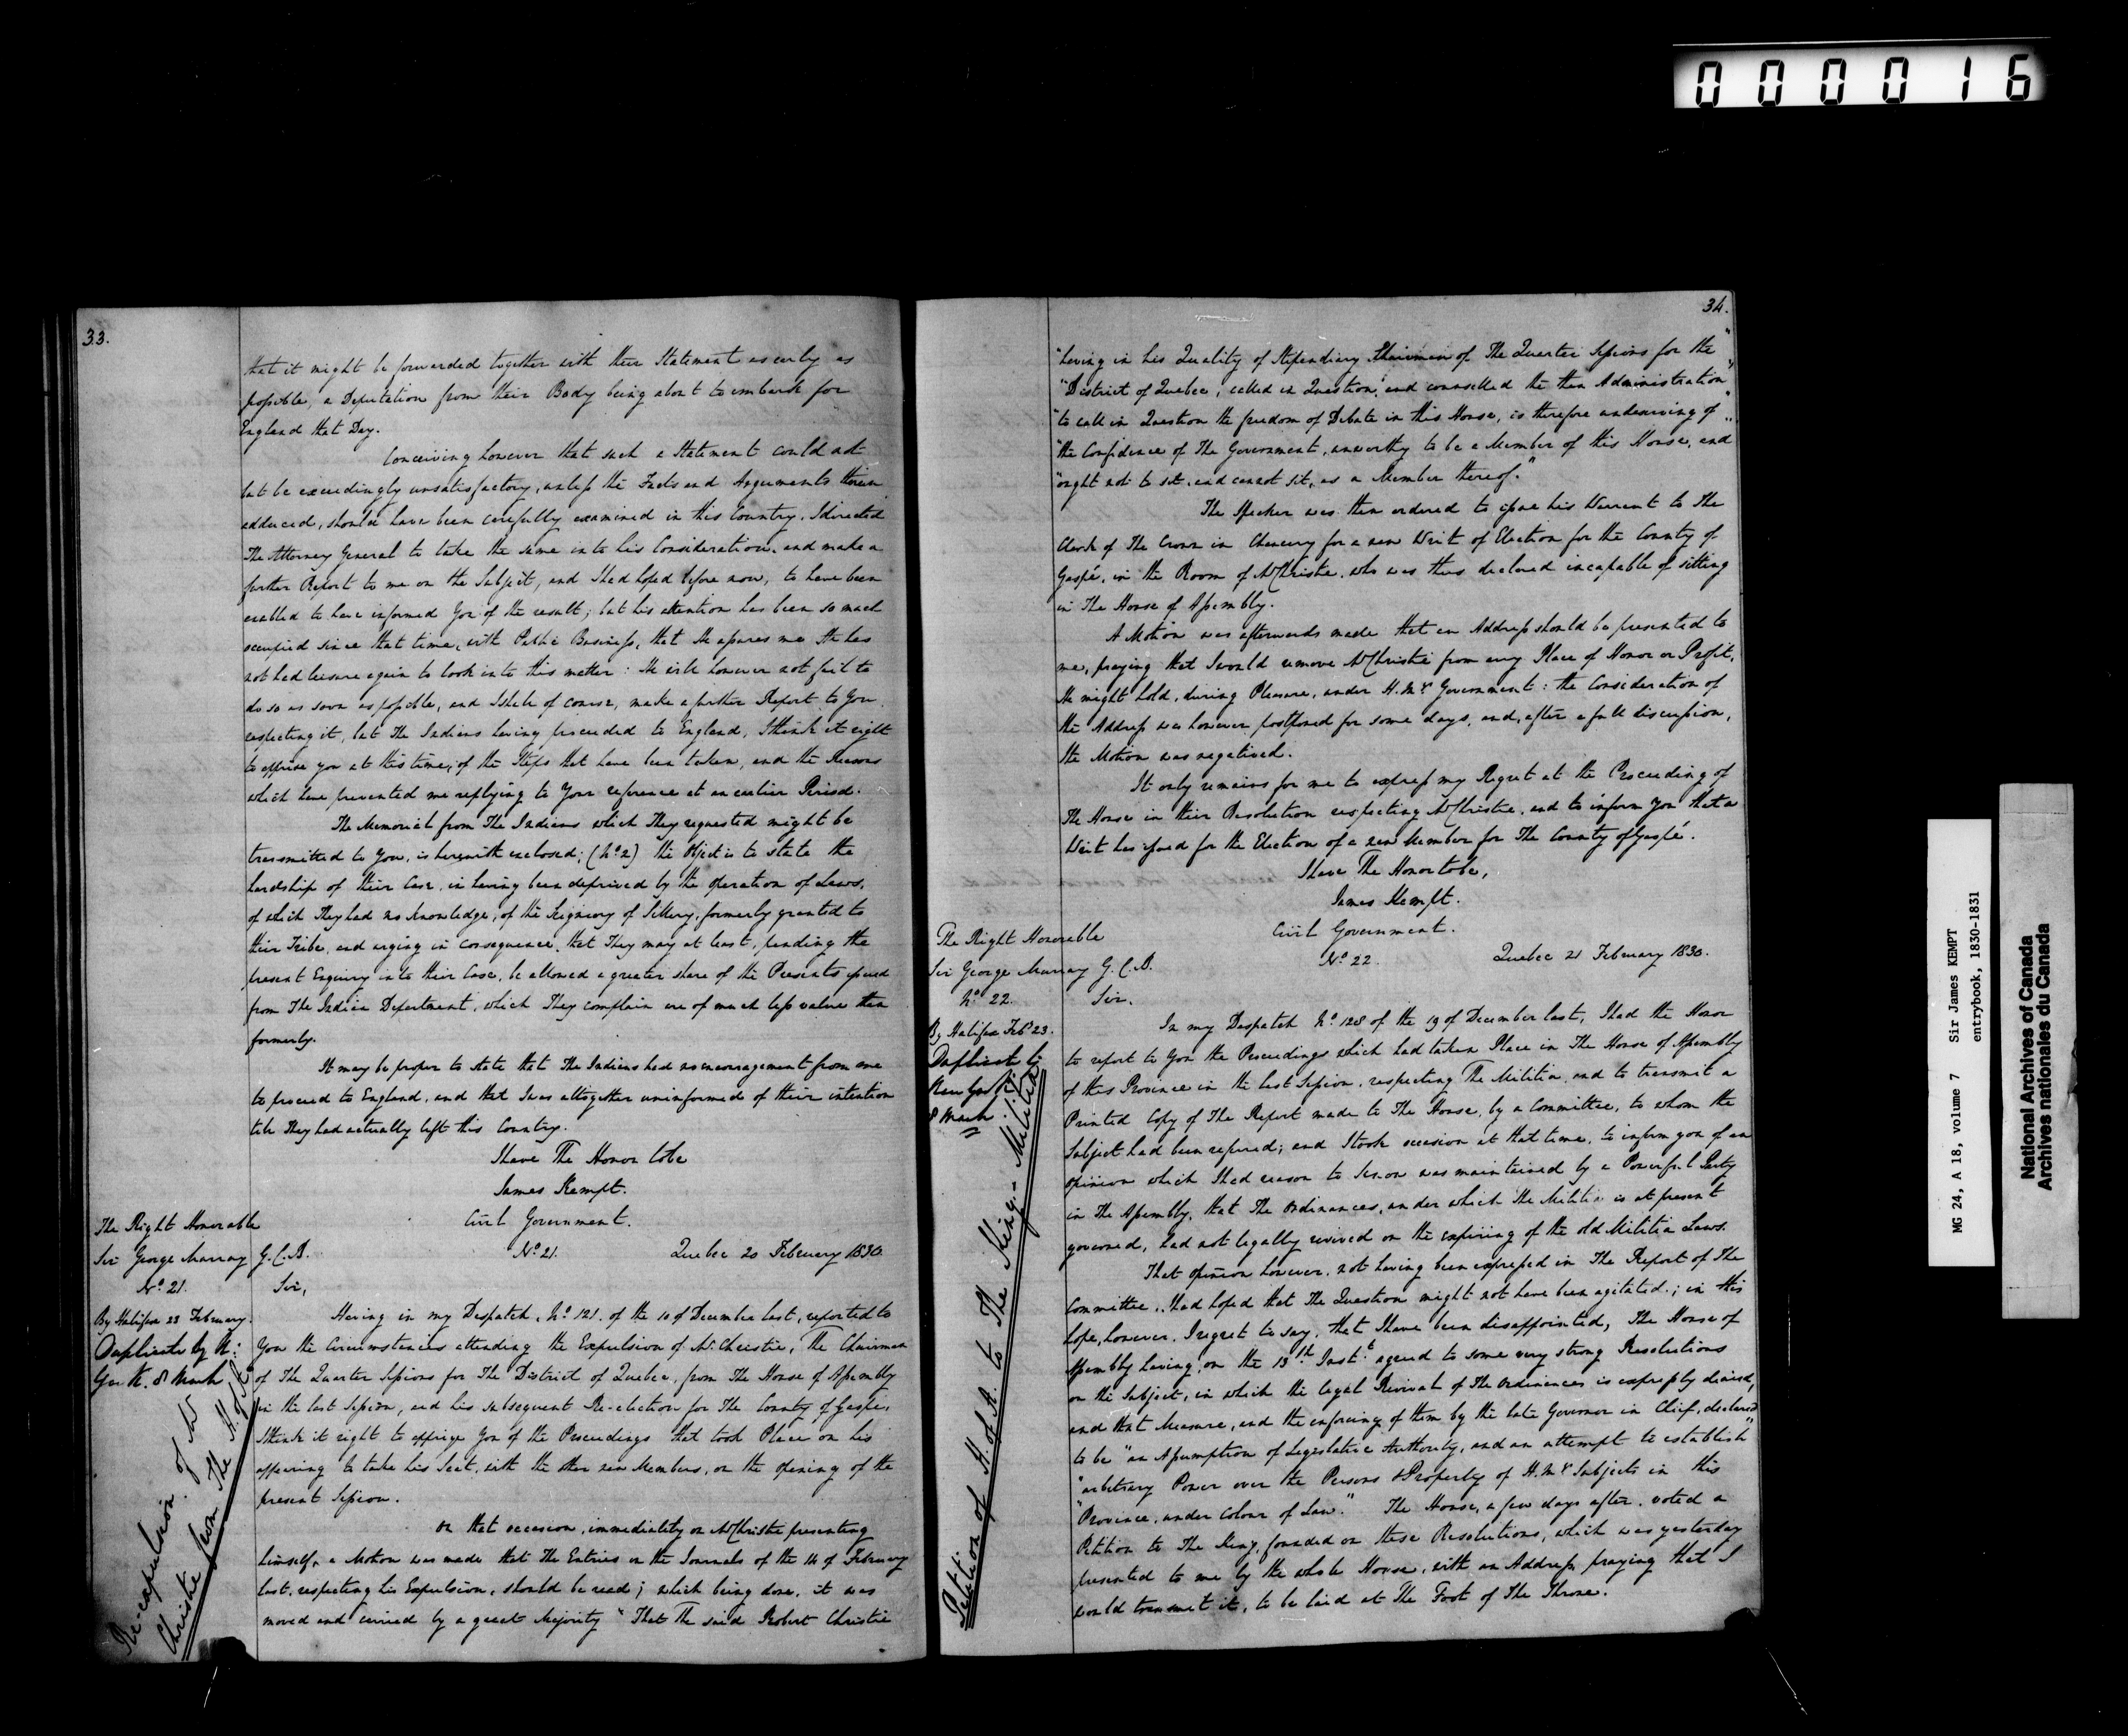 000016
33.
that it might be forwarded together with their Statement as early as
possible, a Deputation from their Body being about to embark for
England that Day.
Conceiving however that such a Statement could not
but be exceedingly unsatisfactory, unless the Facts and Arguments therein
adduced, should have been carefully examined in this Country, I directed
The Attorney General to take the same into his Consideration, and make a
further Report to me on the Subject, and I had hoped before now, to have been
enabled to have informed You of the result; but his attention has been so much
occupied since that time, with Public Business, that He assures me He has
not had leisure again to look into this matter: He will however not fail to
do so as soon as possible, and I shall of course, make a further Report to You
respecting it, but The Indians having proceeded to England, I think it right
to apprise you at this time, of the Steps that have been taken, and the Reasons
which have prevented me replying to Your reference at an earlier Period.
The Memorial from The Indians which They requested might be
transmitted to You, is herewith enclosed; (No 2) the Object is to state the
hardship of their Case, in having been deprived by the operation of Laws,
of which They had no knowledge, of the Seigniory of Sillery, formerly granted to
their Tribe, and urging in consequence, that They may at least, pending the
present Enquiry into their Case, be allowed a greater share of the Presents issued
from The Indian Department, which They complain are of much less value than
formerly.
It may be proper to state that The Indians had no encouragement from me
to proceed to England, and that I was altogether uninformed of their intention
till They had actually left this Country.
I have The Honor to be
James Kempt.
The Right Honorable
Sir George Murray G.C.B.
Civil Government.
No 21.
Quebec 20 February 1830
No 21.
Sir,
By Halifax 23 February.
Duplicate by N:
York. 8 March
Re-expulsion of Mr
Christie from The H. of A.
Having in my Despatch, No 121. of the 10 of December last, reported to
You the Circumstances attending the Expulsion of Mr Christie, The Chairman
of The Quarter Sessions for The District of Quebec, from The House of Assembly
in the last Session, and his subsequent Re-election for The County of Gaspé,
I think it right to apprize You of the Proceedings that took Place on his
appearing to take his Seat, with the other new Members, on the opening of the
present Session.
On that occasion, immediately on Mr Christie presenting
himself, a Motion was made that The Entries in the Journals of the 14 of February
last, respecting his Expulsion, should be read; which being done, it was
moved and carried by a great Majority "That The said Robert Christie
34.
"having in his Quality of Stipendiary Chairman of The Quarter Sessions for the"
"District of Quebec, called in Question, and counselled the then Administration"
"to call in Question the freedom of Debate in this House, is therefore undeserving of"
"the Confidence of The Government, unworthy to be a Member of this House, and
"ought not to sit, and cannot sit, as a Member thereof."
The Speaker was then ordered to issue his Warrant to The
Clerk of The Crown in Chancery for a new Writ of Election for the County of
Gaspé, in the Room of Mr Christie, who was thus declared incapable of sitting
in The House of Assembly.
A Motion was afterwards made that an Address should be presented to
me, praying that I would remove Mr Christie from any Place of Honor or Profit,
He might hold, during Pleasure, under H.My's Government: the Consideration of
the Address was however postponed for some days, and, after a full discussion,
the Motion was negatived.
It only remains for me to express my Regret at the Proceeding of
The House in their Resolution respecting Mr Christie, and to inform You that a
Writ has issued for the Election of a new Member for The County of Gaspé.
I have The Honor to be,
James Kempt.
The Right Honorable
Sir George Murray G.C.B.
Civil Government.
No 22.
Quebec 21 February 1830.
No 22.
Sir,
By Halifax Feby 23.
Duplicate by
New York
8 March
Petition of H. of A. to The King. - Militia
In my Despatch No 128 of the 19 of December last, I had the Honor
to report to You the Proceedings which had taken Place in The House of Assembly
of this Province in the last Session, respecting The Militia, and to transmit a
Printed Copy of The Report made to The House, by a Committee, to whom the
Subject had been referred; and I took occasion at that time, to inform you of an
opinion which I had reason to know was maintained by a Powerful Party
in The Assembly, that The Ordinances, under which The Militia is at present
governed, had not legally revived on the expiring of the old Militia Laws.
That opinion however, not having been expressed in The Report of The
Committee, I had hoped that The Question might not have been agitated; in this
hope, however, I regret to say, that I have been disappointed, The House of
Assembly having, on the 13th Inst. agreed to some very strong Resolutions
on the Subject, in which the legal Revival of The Ordinances is expressly denied,
and that Measure, and the enforcing of them by the late Governor in Chief, declared
to be "an Assumption of Legislative Authority, and an attempt to establish"
"arbitrary Power over the Persons & Property of H.My's Subjects in this
"Province, under Colour of Law." The House, a few days after, voted a
Petition to The King, founded on these Resolutions, which was yesterday
presented to me by the whole House, with an Address, praying that I
would transmit it, to be laid at The Foot of The Throne.
MG 24, A 18, volume 7 Sir James KEMPT
entrybook, 1830-1831
National Archives of Canada
Archives nationales du Canada